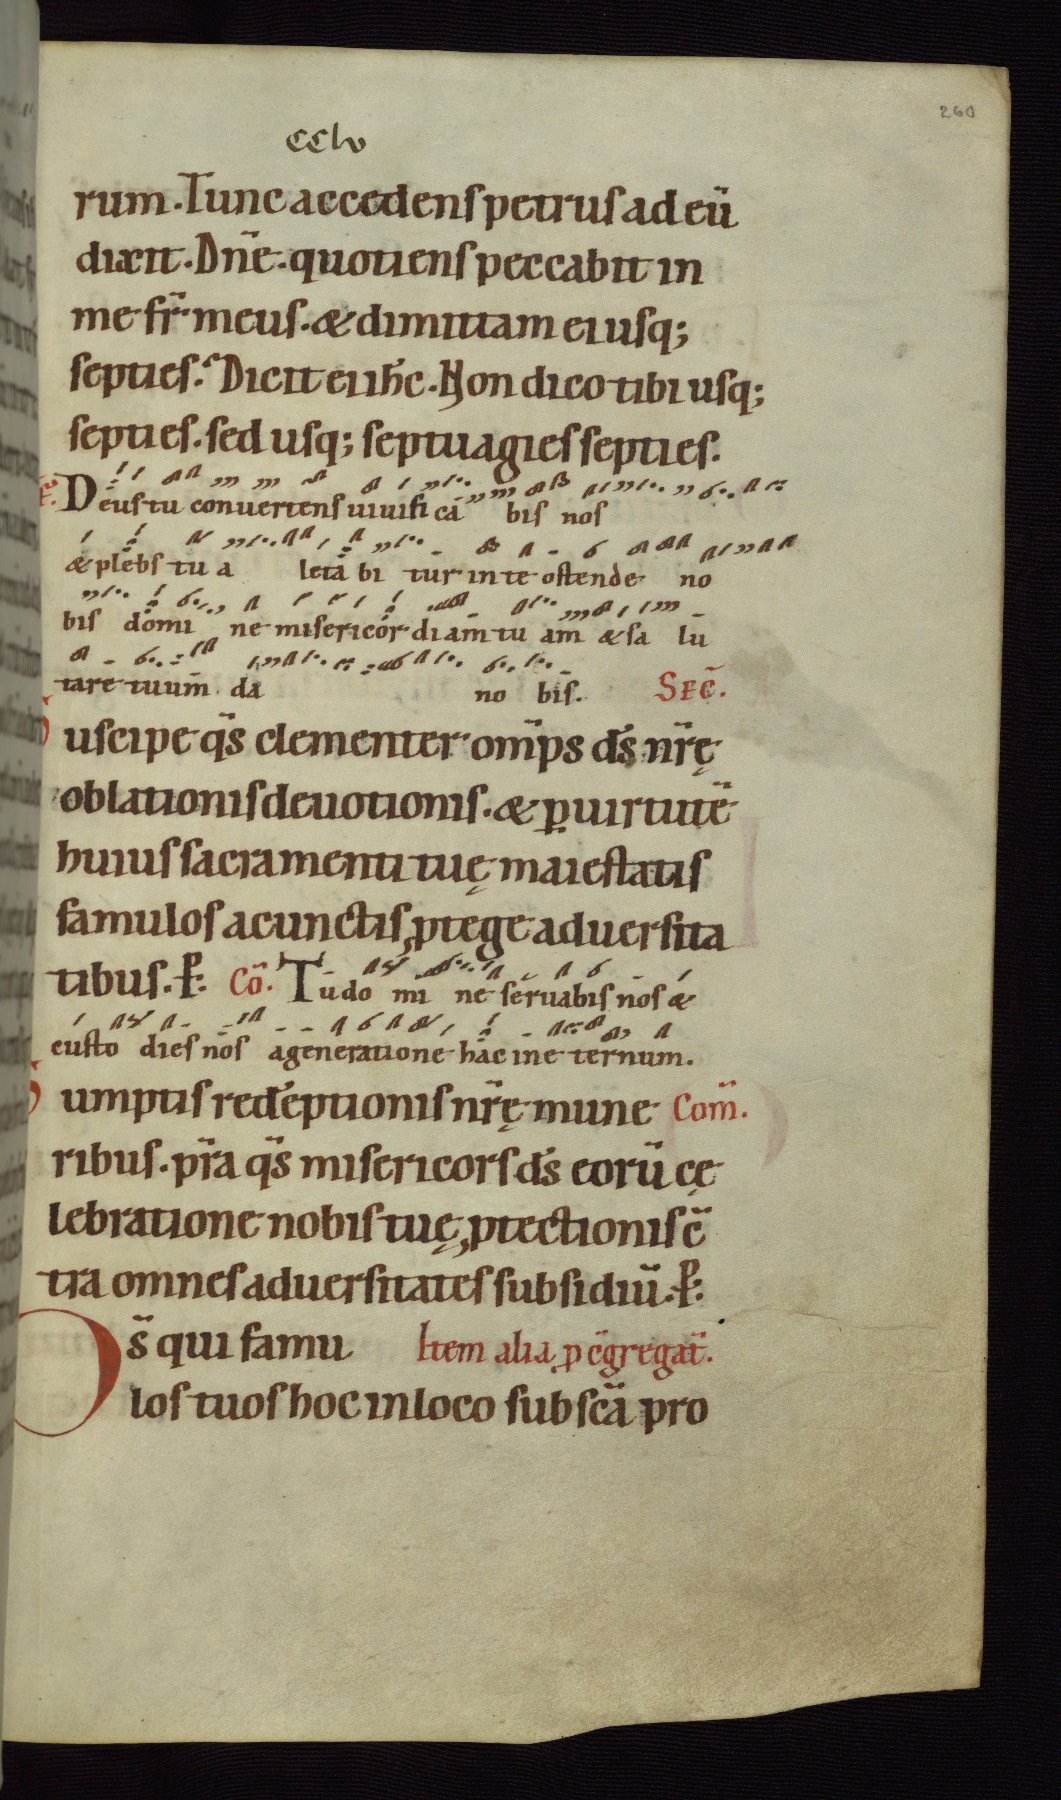 260
CClv
rum. Tunc accedens petrus ad eū
dixit. Dn̄e. quotiens peccabit in
me fr̄ meus. & dimittam ei usq;
septies. Dicit ei ih̄c. Non dico tibi usq;
septies. sed usq; septuagies septies.
Deus tu convertens uiuifi cā bis nos
& plebs tu a letā bi tur in te ostende no
bis domi ne misericor diam̄ tu am̄ & sa lu
tare tuum̄ da no bis. Sec̄.
Suscipe qs̄ clementer om̄ps ds̄ nr̄ę
oblationis deuotionis. & ꝑ uirtutē
huius sacramenti tuę maiestatis
famulos a cunctis ꝓtege aduersita
tibus. P̱. Co͞. Tu do mi ne seruabis nos &
custo dies nos a generatione hac in e ternum.
Sumptis redemptionis nr̄ę mune Com̄.
ribus. pr̄a qs̄ misericors ds̄ eorū cę
lebratione nobis tuę ꝓtectionis c̄
tra omnes aduersitates subsidiū. P̱.
Ds̄ qui famu Item alia ꝑ c̄gregat̄.
los tuos hoc in loco sub sc̄a pro